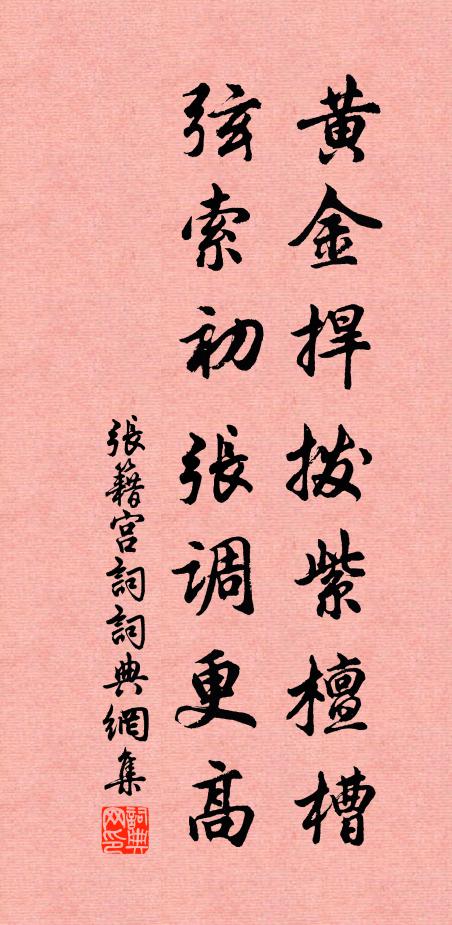 黄金捍拨紫檀槽
弦索初張调更高
張籍宫詞詞典網集
詞典网印